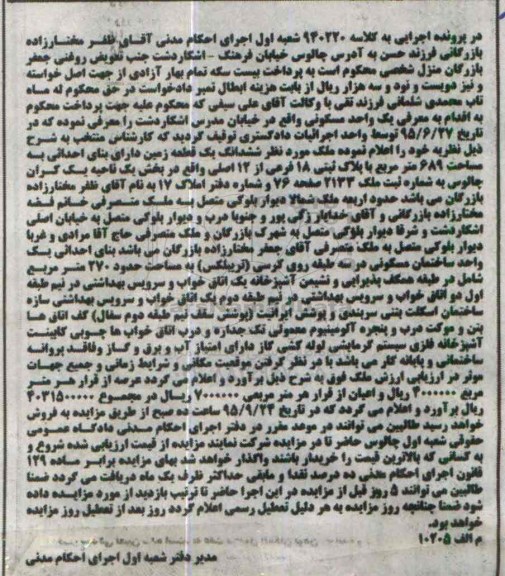 در پرونده اجرایی به کلاسه ۹۴۰۲۲۰ شعبه اول اجرای احکام مدنی آقای ظفر مختارزاده
بازرگانی فرزند حسن به آدرس چالوس خیابان فرهنگ - اشکاردشت جنب تعویض روغنی جعفر
بازرگان منزل شخصی محکوم است به پرداخت بیست سکه تمام بهار آزادی از جهت اصل خواسته
و نیز دویست و نود و سه هزار ریال از بابت هزینه ابطال تمبر دادخواست در حق محکوم له ماه
تاب محمدی شلمانی فرزند تقی با وکالت آقای علی سیفی که محکوم علیه جهت پرداخت محکوم
به اقدام به معرفی یک واحد مسکونی واقع در خیابان مدرس اشکاردشت را معرفی نموده که در
تاریخ ۹۵/۶/۲۷ توسط واحد اجرائیات دادگستری توقیف گردید که کارشناس منتخب به شرح
ذیل نظریه خود را اعلام نموده ملک مورد نظر ششدانگ یک قطعه زمین دارای بنای احداثی به
مساحت ۶۸۹ متر مربع با پلاک ثبتی ۱۸ فرعی از ۱۲ اصلی واقع در بخش یک ناحیه یک کران
چالوس به شماره ثبت ملک ۲۱۲۳ صفحه ۷۶ و شماره دفتر املاک ۱۷ به نام آقای ظفر مختارزاده
بازرگان می باشد حدود اربعه ملک شمالا دیوار بلوکی متصل به ملک متصرفی خانم فضه
مختارزاده بازرگانی و آقای خدایار زگی پور و جنوبا مرب و دیوار بلوکی متصل به خیابان اصلی
اشکاردشت و شرقا دیوار بلوکی متصل به شهرک بازرگان و ملک متصرفی حاج آقا مرادی و غربا
دیوار بلوکی متصل به ملک متصرفی آقای جعفر مختارزاده بازرگان می باشد بنای احداثی یک
واحد ساختمان مسکونی در سه طبقه روی کرسی (تریبلکس) به مساحت حدود ۲۷۰ متر مربع
شامل در طبقه همکف پذیرایی و نشیمن آشپزخانه یک اتاق خواب و سرویس بهداشتی در نیم طبقه
اول دو اتاق خواب و سرویس بهداشتی در نیم طبقه دوم یک اتاق خواب و سرویس بهداشتی سازه
ساختمان اسکلت بتنی سربندی و پوشش ایرانیت (پوششی سقف نیم طبقه دوم سفال) کف اتاق ها
بتن و موکت درب و پنجره آلومینیوم معمولی تک جداره و درب اتاق خواب ها چوبی کابینت
آشپزخانه فلزی سیستم گرمایشی لوله کشی گاز دارای امتیاز آب و برق و گاز وفاقد پروانه
ساختمانی و پایانه کار می باشد با در نظر گرفتن موقعیت مکانی و شرایط زمانی و جمیع جهات
موثر در ارزیابی ارزش ملک فوق به شرح ذیل برآورد و اعلام می گردد عرصه از قرار هر متر
مربع ۴۰۰۰۰۰۰ ریال و اعیان از قرار هر متر مربعی ۷۰۰۰۰۰۰ ریال در مجموع ۴۰۲۱۵۰۰۰۰۰
ریال برآورد و اعلام می گردد که در تاریخ ۹۵/۹/۲۴ ساعت ده صبح از طریق مزایده به فروش
خواهد رسید طالبین می توانند در موعد مقرر در دفتر اجرای احکام مدنی دادگاه عمومی
حقوقی شعبه اول چالوس حاضر تا در مزایده شرکت نمایند مزایده از قیمت ارزیابی شده شروع و
به کسانی که بالاترین قیمت را خریدار باشند واگذار خواهد شد بهای مزایده برابر ماده ۱۲۹
قانون اجرای احکام مدنی ده درصد نقدا و مابقی حداکثر ظرف یک ماه دریافت می گردد ضمنا
طالبین می توانند ۵ روز قبل از مزایده در این اجرا حاضر تا ترتیب بازدید از مورد مزایده داده
شود ضمنا چنانچه روز مزایده به هر دلیل تعطیل رسمی اعلام گردد روز بعد از تعطیل روز مزایده
خواهد بود.
م الف ۱۰۲۰۵
مدیر دفتر شعبه اول اجرای احکام مدنی